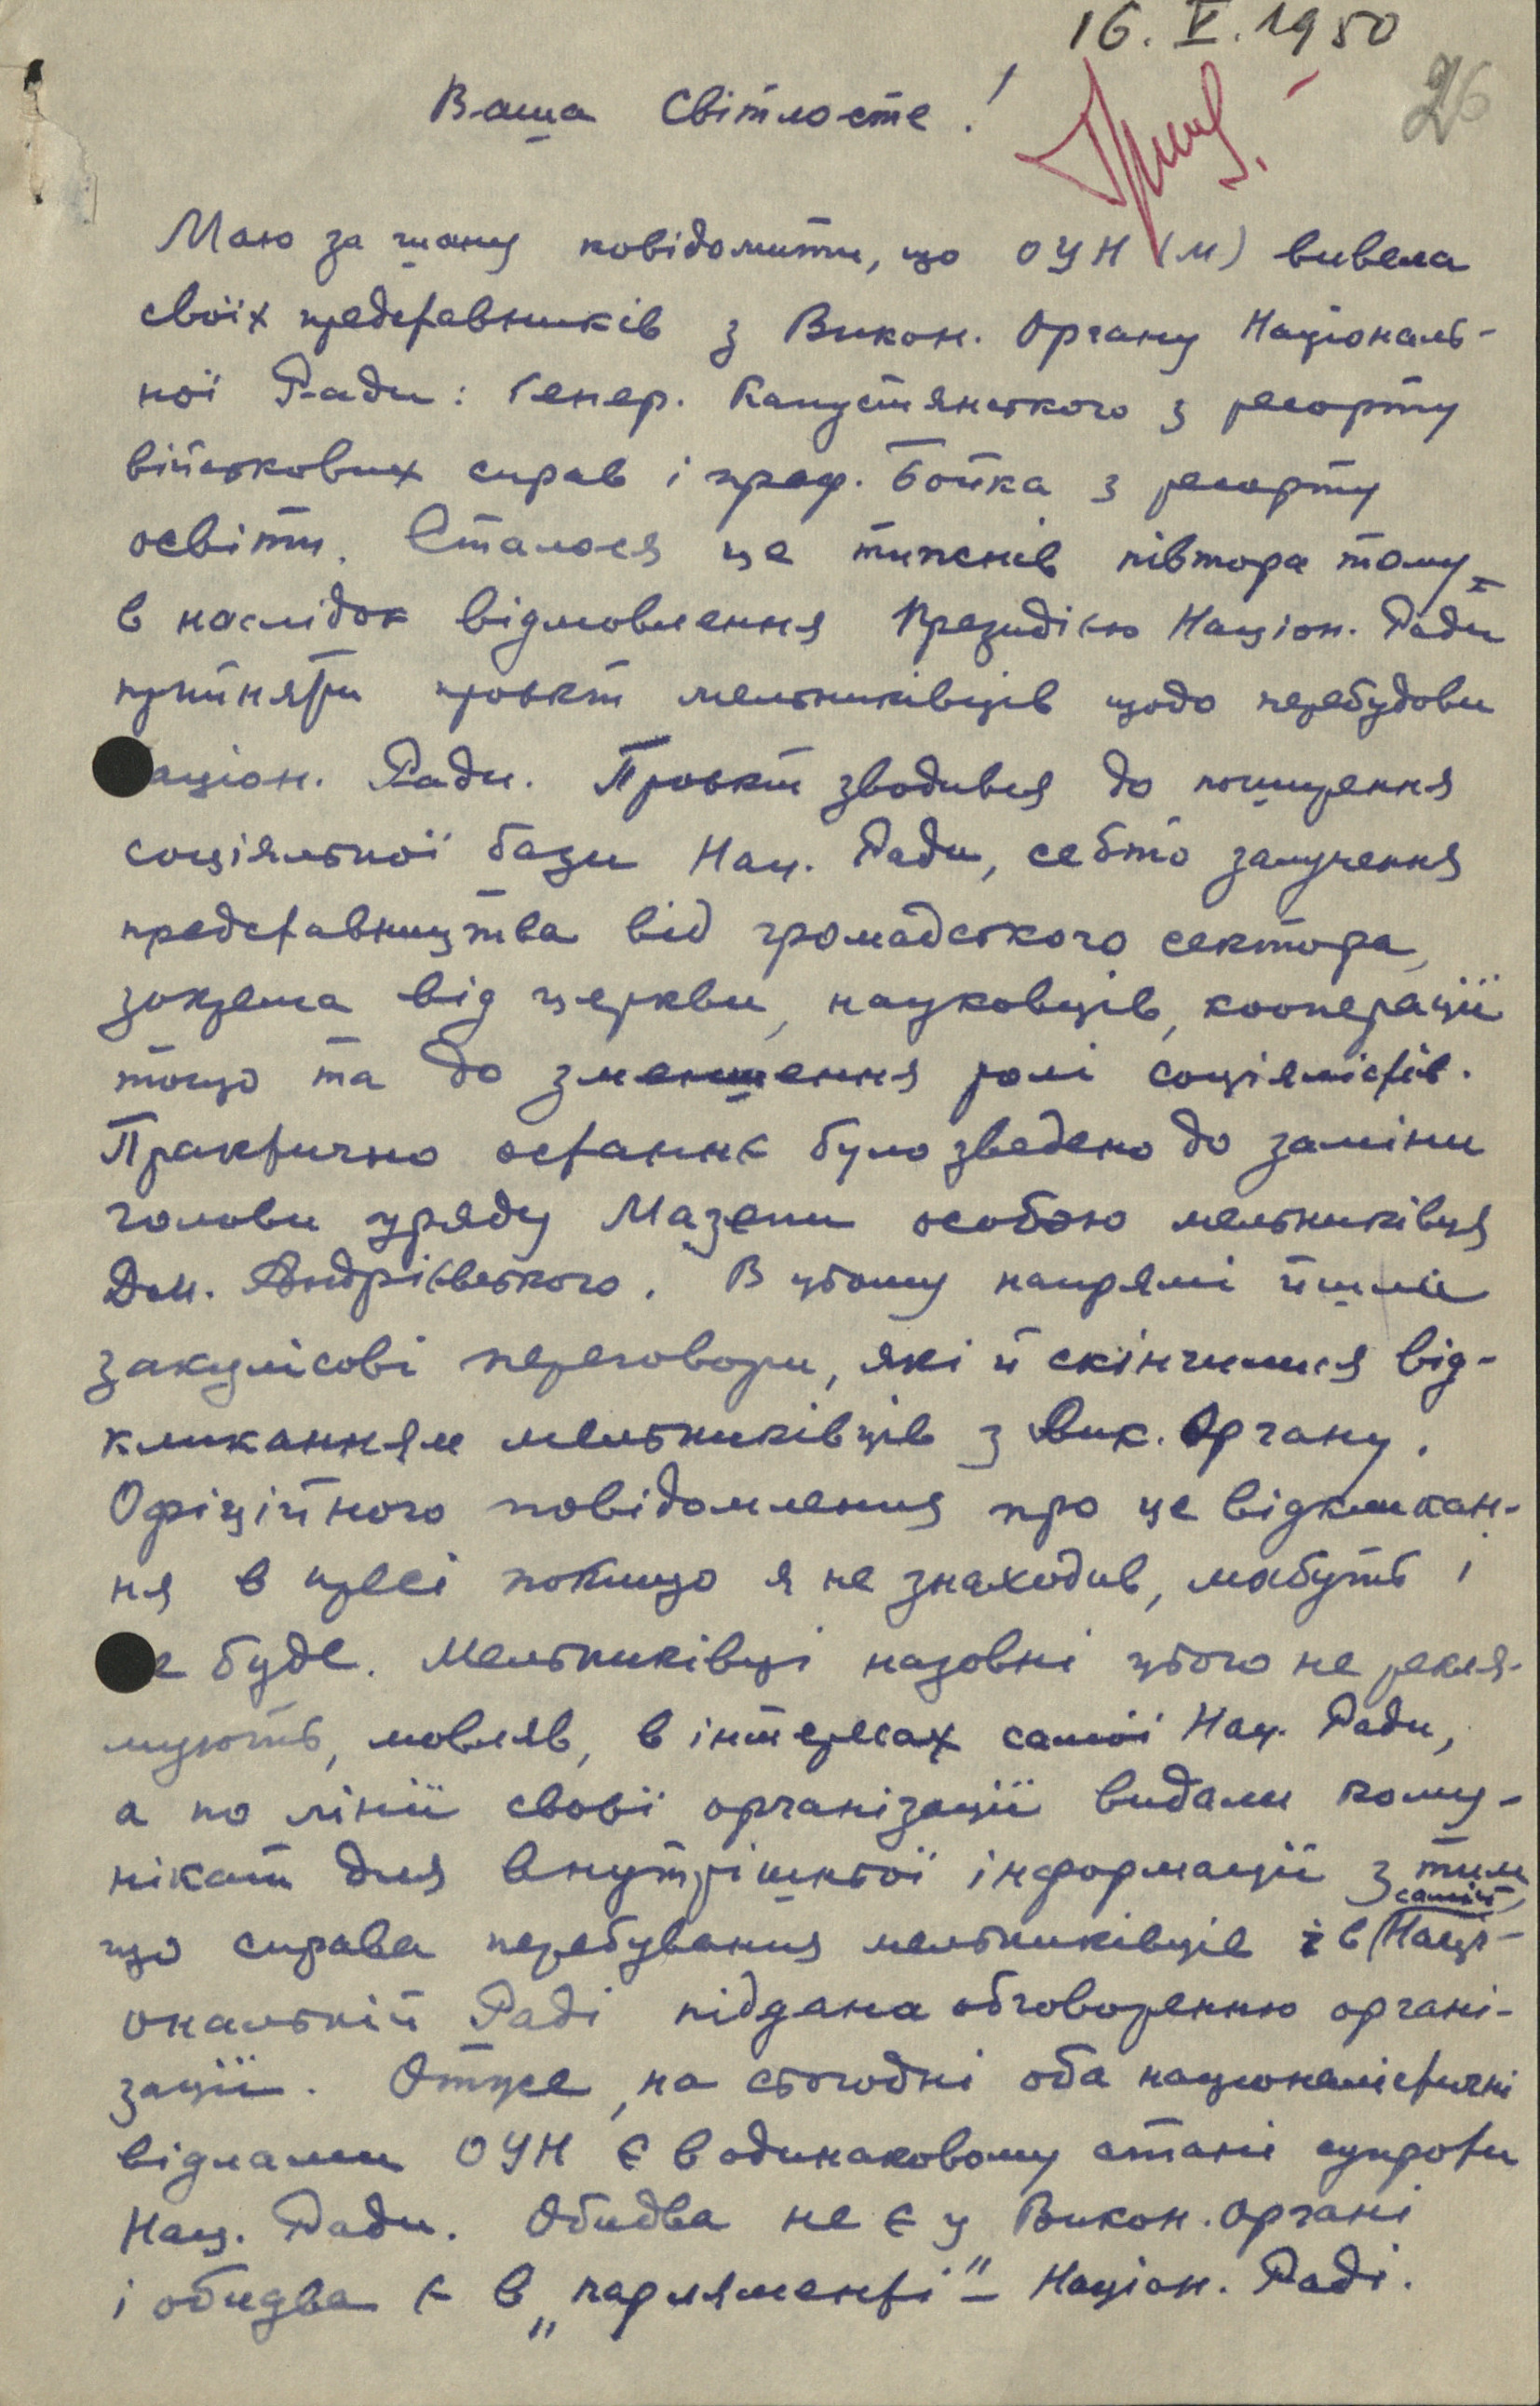 16. V. 1950
26
Ваша Світлосте!
Маю за шану повідомити, що ОУН (м) вивела
своїх представників з Викон. Органу Національ-
ної Ради: Генер. Капустянського з ресорту
військових справ і проф. Бойка з ресорту
освіти. Сталося це тижнів півтора тому
в наслідок відмовлення Президією Націон. Ради
прийняти проєкт мельниківців щодо перебудови
аціон. Ради. Проєкт зводився до поширення
соціяльної бази Нац. Ради, себто залучення
представництва від громадського сектора,
зокрема від церкви, науковців, кооперації
тощо та до зменшення ролі соціялістів.
Практично останнє було зведено до заміни
голови уряду Мазепи особою мельниківця
Дм. Андрієвського. В цьому напрямі йшли
закулісові переговори, які й скінчилися від-
кликанням мельниківців з Вик. Органу.
Офіційного повідомлення про це відкликан-
ня в пресі покищо я не знаходив, мабуть і
е буде. Мельниківці назовні цього не рекля-
мують, мовляв, в інтересах самої Нац. Ради,
а по лінії своєї організації видали кому-
нікат для внутрішньої інформації з тим,
що справа перебування мельниківців і в самій Наці-
ональній Раді піддана обговоренню органі-
зації. Отже, на сьогодні оба націоналістичні
відлами ОУН є в одинаковому стані супроти
Нац. Ради. Обидва не є у Викон. Органі
і обидва є в „парляменті" – Націон. Раді.